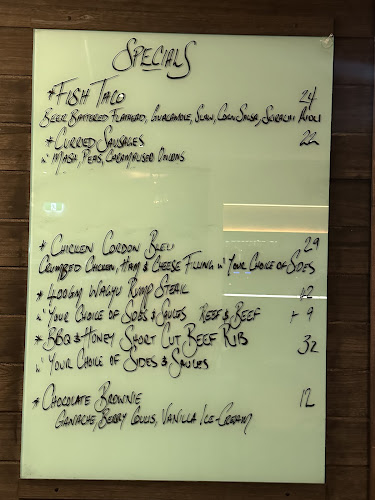 SPECIALS
* FISH TACO 24
BEER BATTERED FLATHEAD, GUACAMOLE, SLAW, CORN SALSA, SRIRACHA AIOLI
* CURRIED SAUSAGES 22
w/ MASH, PEAS, CARAMALISED ONIONS
* CHICKEN CORDON BLEU 29
CRUMBED CHICKEN, HAM & CHEESE FILLING w/ YOUR CHOICE OF SIDES
* 400GM WAGYU RUMP STEAK 42
w/ YOUR CHOICE OF SIDES & SAUCES REEF & BEEF + 9
* BBQ & HONEY SHORT CUT BEEF RIB 32
w/ YOUR CHOICE OF SIDES & SAUCES
* CHOCOLATE BROWNIE 12
GANACHE, BERRY COULIS, VANILLA ICE-CREAM